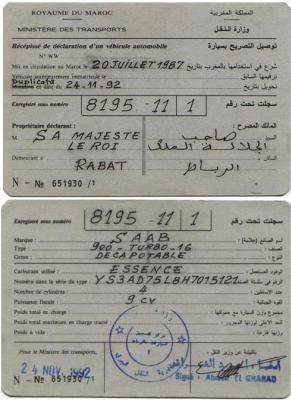 ROYAUME DU MAROC المملكة المغربية
MINISTÈRE DES TRANSPORTS وزارة النقل
Récépissé de déclaration d'un véhicule automobile توصيل التصريح بسيارة
N° WW
Mis en circulation au Maroc le 20 JUILLET 1987 شرع في استخدامها بالمغرب بتاريخ
Véhicule antérieurement immatriculé ترقيمها السابق
Duplicata
Mutation en date du 24.11.92 تحويل بتاريخ
Enregistré sous numéro 8195-11 1 سجلت تحت رقم
Propriétaire déclarant : المالك المصرح :
M SA MAJESTE صاحب
LE ROI الجلالة الملك
Demeurant à
RABAT الرباط
N - № 651930 /1
Enregistré sous numéro 8195-11 1 سجلت تحت رقم
Marque : SAAB
Type : 900-TURBO-16 النوع
Genre : DECAPOTABLE الجنس
Carburant utilisé : ESSENCE الوقود المستعمل
Numéro dans la série du type : YS3AD75LBH7015121
Nombre de cylindres : 4
Puissance fiscale : 9 cv
Poids total en charge :
Poids total maximum en charge tracté :
Poids à vide :
Pour le Ministre des transports,
24 NOV. 1992
Signé : Ahmed EL GHARAD
N - № 651930 /1